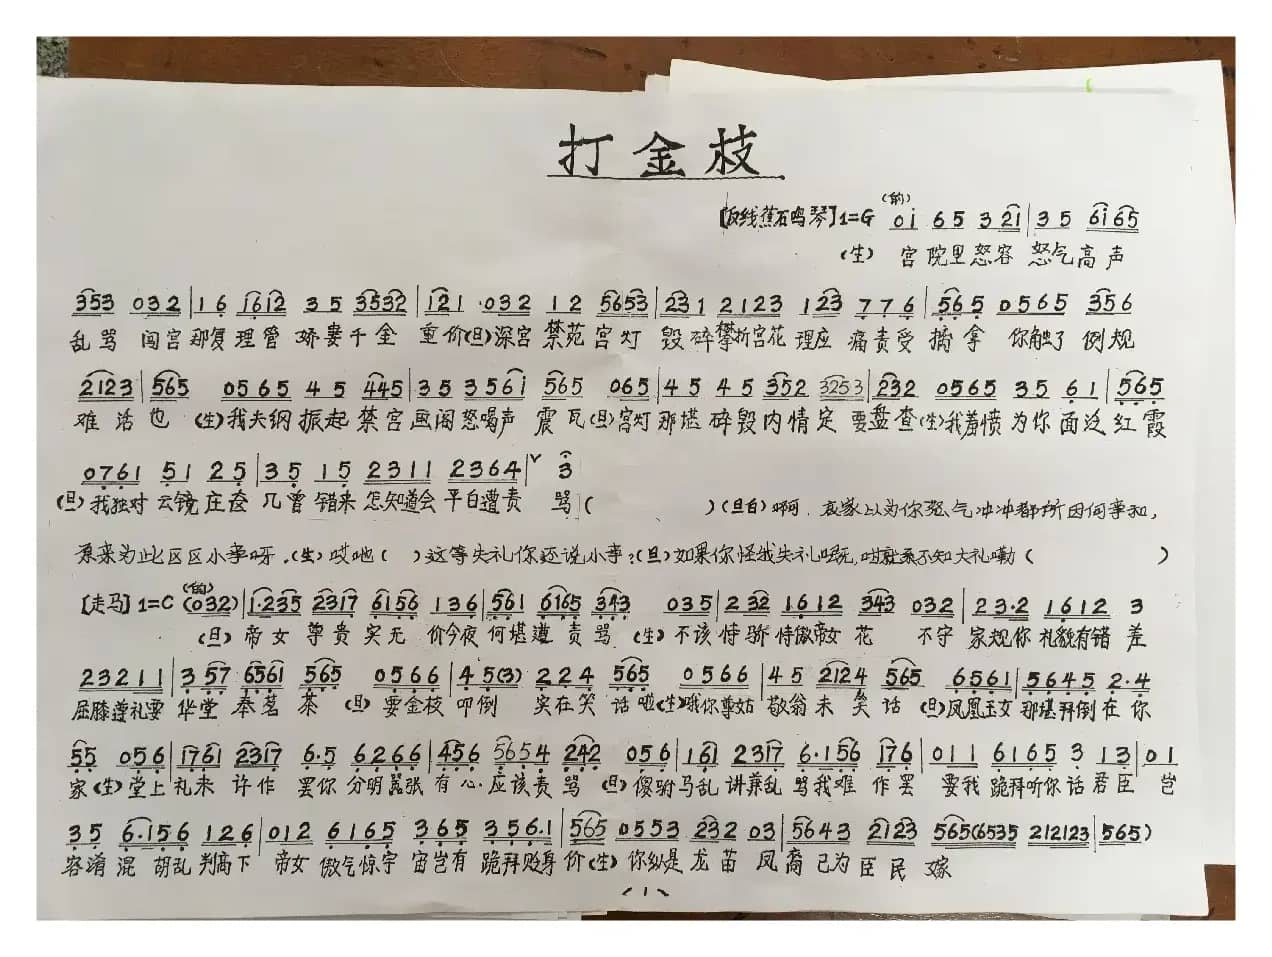 打金枝
[反线蕉石鸣琴] 1=G (的) 0i 65 3 2i | 35 6i65
(生) 宫院里怒容 怒气高声
353 032 | 16 1612 35 3532 | 121 ·032 12 5653 | 231 2123 123 776 | 565 0565 356
乱骂 闯宫那复理管 娇妻千金 重价(旦)深宫禁苑宫灯 毁碎攀折宫花 理应痛责受摘拿 你触了例规
2123 | 565 0565 45 445 | 35 356i 565 065 | 45 45 352 3253 | 232 0565 35 61 | 565
难活也 (生)我夫纲振起禁宫画阁怒喝声震瓦(旦)宫灯那堪碎毁内情定要盘查(生)我羞愤为你面泛红霞
0761 51 25 | 35 15 2311 2364 | 3
(旦)我独对云镜庄奁几曾错来怎知道会平白遭责骂( )(旦白)啊,哀家以为你怒气冲冲都所因何事和,
原来为此区区小事呀,(生)哎吔( )这等失礼你还说小事?(旦)如果你怪我失礼呢,咁就系不知大礼嘞( )
[走马] 1=C (的) (032) | 1·235 2317 6156 136 | 561 6165 343 035 | 2 32 1612 343 032 | 23·2 1612 3
(旦)帝女尊贵实无价今夜何堪遭责骂(生)不该恃骄恃傲帝女花 不守家规你礼貌有错差
23211 | 3 57 6561 565 0566 | 45(3) 224 565 0566 | 45 2124 565 6561 | 5645 2·4
屈膝遵礼要华堂奉茗茶(旦)要金枝叩倒 实在笑话啦(生)哦你尊姑敬翁未笑话(旦)凤凰玉女那堪拜倒在你
55 056 | 1761 2317 6·5 6266 | 456 5654 242 056 | 161 2317 6·156 176 | 011 6165 3 13 | 01
家(生)堂上礼来许作罢你分明嚣张有心应该责骂(旦)傻驸马乱讲兼乱骂我难作罢 要我跪拜听你话君臣岂
35 6·156 126 | 012 6165 365 356·1 | 565 0553 232 03 | 5643 2123 565(6535 212123 | 565)
容淆混胡乱判高下 帝女傲气惊宇宙岂有跪拜贬身价(生)你纵是龙苗凤裔已为臣民嫁
(1)